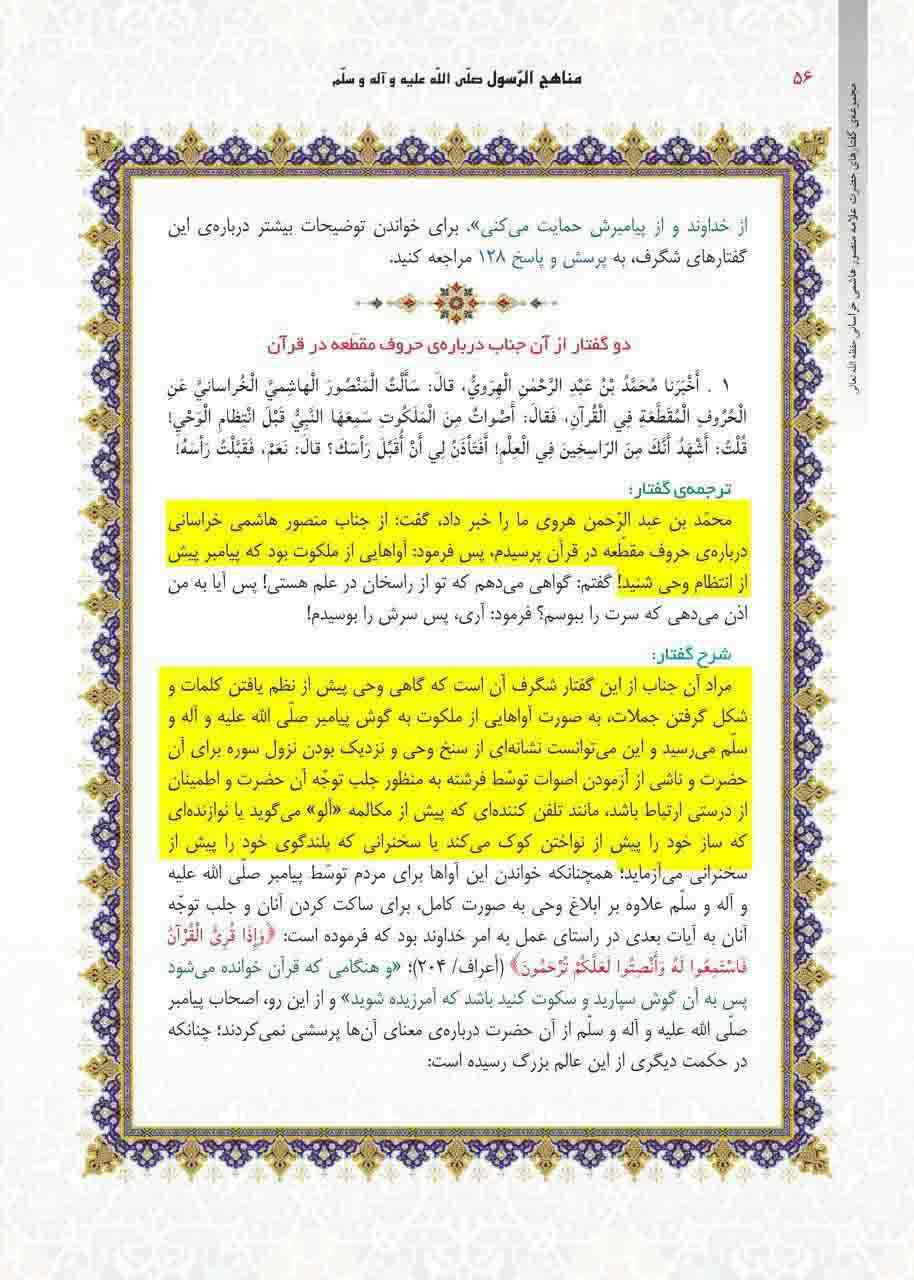 ۵۶
مناهج الرّسول صلّی اللّه علیه و آله و سلّم
مجموعه‌ی گفتارهای حضرت علامه منصور هاشمی خراسانی حفظه الله تعالی
از خداوند و از پیامبرش حمایت می‌کنی». برای خواندن توضیحات بیشتر درباره‌ی این
گفتارهای شگرف، به پرسش و پاسخ ۱۲۸ مراجعه کنید.
دو گفتار از آن جناب درباره‌ی حروف مقطّعه در قرآن
۱ . أَخْبَرَنا مُحَمَّدُ بْنُ عَبْدِ الرَّحْمٰنِ الْهِرَوِيُّ، قالَ: سَأَلْتُ الْمَنْصُورَ الْهاشِمِيَّ الْخُراسانِيَّ عَنِ
الْحُرُوفِ الْمُقَطَّعَةِ فِي الْقُرآنِ، فَقالَ: أَصْواتٌ مِنَ الْمَلَكُوتِ سَمِعَهَا النَّبِيُّ قَبْلَ انْتِظامِ الْوَحْيِ!
قُلْتُ: أَشْهَدُ أَنَّكَ مِنَ الرّاسِخِينَ فِي الْعِلْمِ! أَفَتَأْذَنُ لِي أَنْ أُقَبِّلَ رَأسَكَ؟ قالَ: نَعَمْ، فَقَبَّلْتُ رَأسَهُ!
ترجمه‌ی گفتار:
محمّد بن عبد الرّحمن هروی ما را خبر داد، گفت: از جناب منصور هاشمی خراسانی
درباره‌ی حروف مقطّعه در قرآن پرسیدم، پس فرمود: آواهایی از ملکوت بود که پیامبر پیش
از انتظام وحی شنید! گفتم: گواهی می‌دهم که تو از راسخان در علم هستی! پس آیا به من
اذن می‌دهی که سرت را ببوسم؟ فرمود: آری، پس سرش را بوسیدم!
شرح گفتار:
مراد آن جناب از این گفتار شگرف آن است که گاهی وحی پیش از نظم یافتن کلمات و
شکل گرفتن جملات، به صورت آواهایی از ملکوت به گوش پیامبر صلّی الله علیه و آله و
سلّم می‌رسید و این می‌توانست نشانه‌ای از سنخ وحی و نزدیک بودن نزول سوره برای آن
حضرت و ناشی از آزمودن اصوات توسّط فرشته به منظور جلب توجّه آن حضرت و اطمینان
از درستی ارتباط باشد، مانند تلفن کننده‌ای که پیش از مکالمه «ألو» می‌گوید یا نوازنده‌ای
که ساز خود را پیش از نواختن کوک می‌کند یا سخنرانی که بلندگوی خود را پیش از
سخنرانی می‌آزماید؛ همچنانکه خواندن این آواها برای مردم توسّط پیامبر صلّی الله علیه
و آله و سلّم علاوه بر ابلاغ وحی به صورت کامل، برای ساکت کردن آنان و جلب توجّه
آنان به آیات بعدی در راستای عمل به امر خداوند بود که فرموده است: ﴿وَإِذَا قُرِئَ الْقُرْآنُ
فَاسْتَمِعُوا لَهُ وَأَنْصِتُوا لَعَلَّكُمْ تُرْحَمُونَ﴾ (أعراف/ ۲۰۴)؛ «و هنگامی که قرآن خوانده می‌شود
پس به آن گوش سپارید و سکوت کنید باشد که آمرزیده شوید» و از این رو، اصحاب پیامبر
صلّی الله علیه و آله و سلّم از آن حضرت درباره‌ی معنای آن‌ها پرسشی نمی‌کردند؛ چنانکه
در حکمت دیگری از این عالم بزرگ رسیده است: